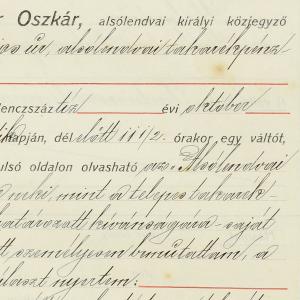 Oszkár, alsólendvai királyi közjegyző
úr, alsólendvai takarékpénz
lenczszáz tíz évi október
napján, dél előtt 11 1/2. órakor egy váltót,
ulsó oldalon olvasható az Alsólendvai
neki, mint a telepes takarék-
határozott kivánságára saját
személyesen bemutattam, a
választ nyertem: